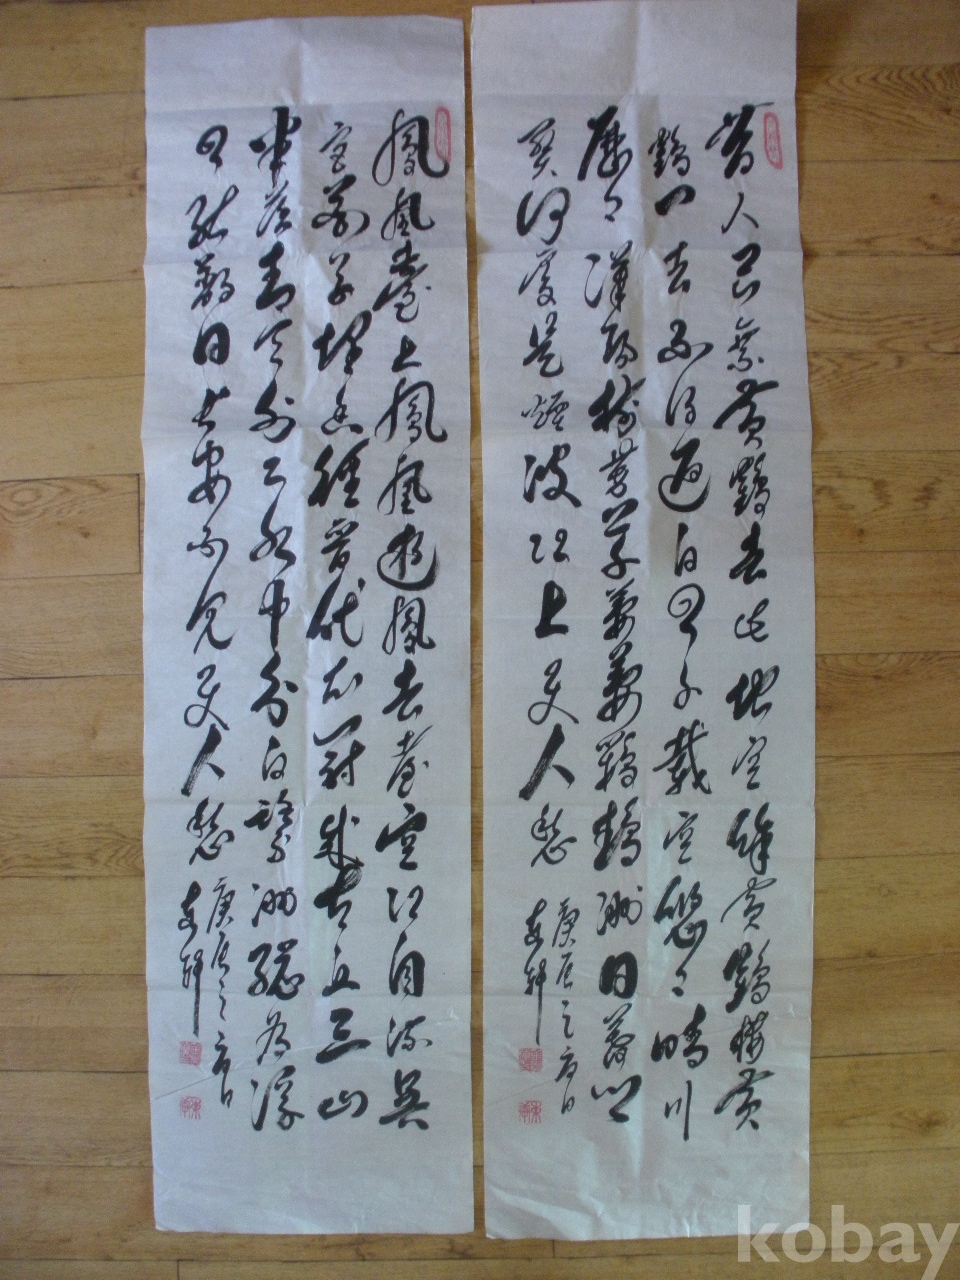 昔人已乘黃鶴去此地空餘黃鶴樓黃
鶴一去不復返白雲千載空悠悠晴川
歷歷漢陽樹芳草萋萋鸚鵡洲日暮鄉
關何處是煙波江上使人愁
庚辰之日
軒
鳳凰臺上鳳凰遊鳳去臺空江自流吳
宮花草埋幽徑晉代衣冠成古丘三山
半落青天外二水中分白鷺洲總為浮
雲能蔽日長安不見使人愁
庚辰之日
軒
kobay